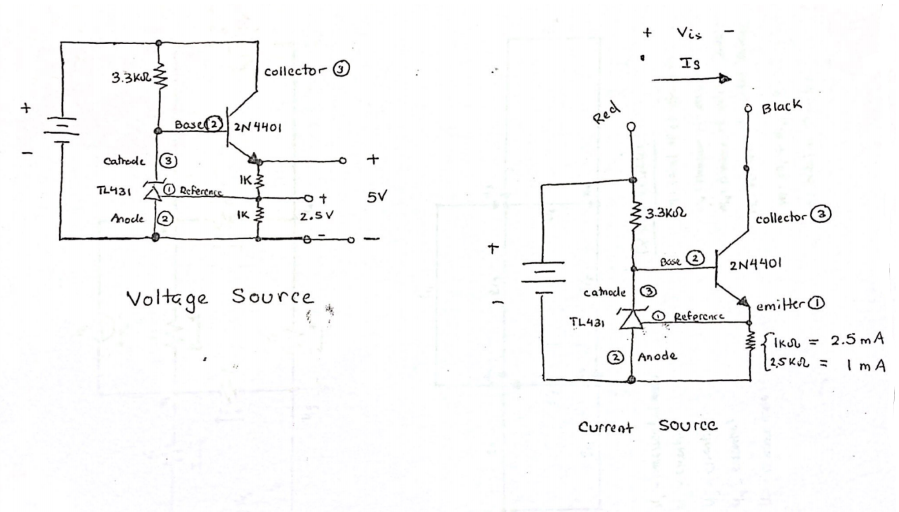 +
-
3.3KΩ
collector ③
Base ②
2N4401
Cathode ③
TL431
① Reference
Anode ②
1K
1K
+
5V
+
2.5V
-
-
Voltage Source
+ Vis -
Is
Red
Black
3.3KΩ
collector ③
+
-
Base ②
2N4401
cathode ③
emitter ①
TL431
① Reference
② Anode
1KΩ = 2.5mA
2.5KΩ = 1mA
Current Source